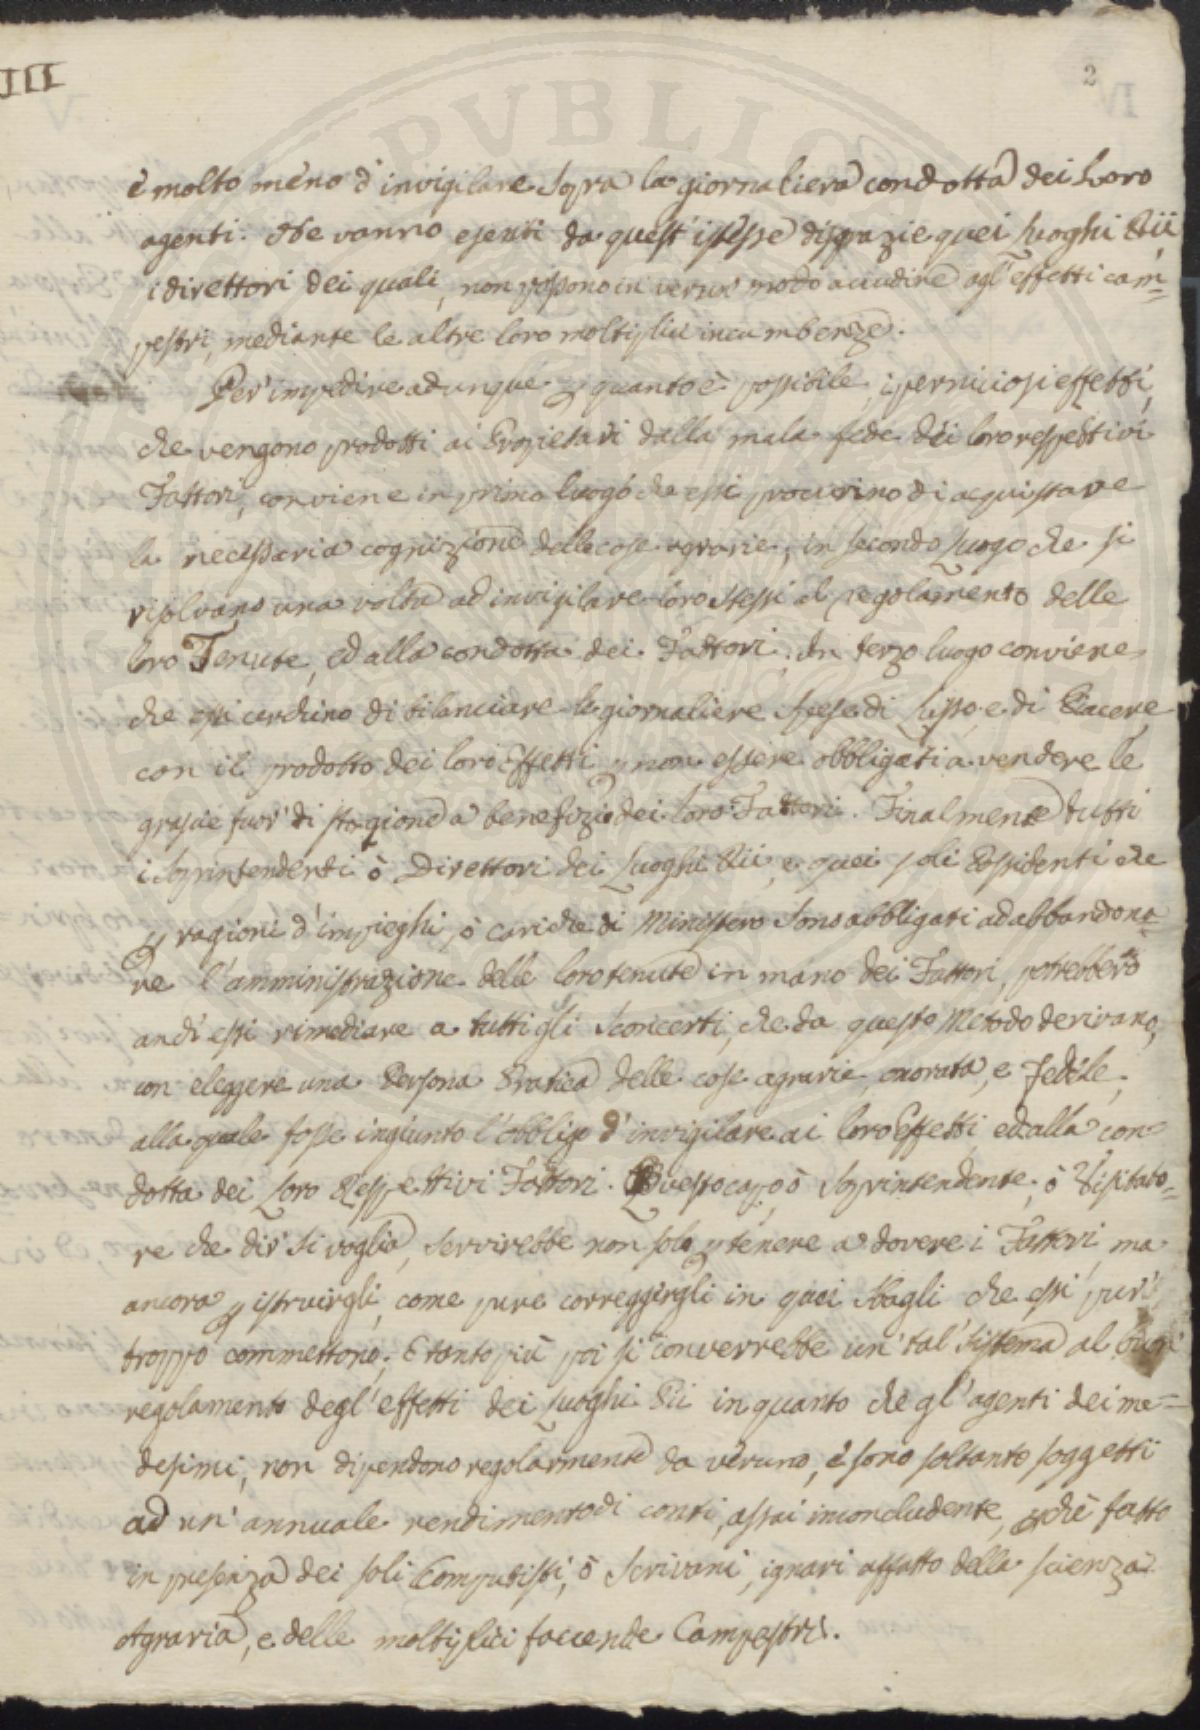 III
2
è molto meno d'invigilare sopra la giornaliera condotta dei Loro
agenti. Ne vanno esenti da quest'istesse disgrazie quei Luoghi Pii,
i direttori dei quali, non possono in verun modo accudire agl'effetti cam=
pestri, mediante le altre loro moltiplici incumbenze.
Per impedire adunque p quanto è possibile i perniciosi effetti,
che vengono prodotti ai Propietari dalla mala fede dei loro respettivi
Fattori, conviene in primo luogo che essi procurino di acquistare
la necessaria cognizione delle cose agrarie, in secondo Luogo che si
risolvano una volta ad invigilare loro stessi al regolamento delle
loro Tenute, ed alla condotta dei Fattori. In terzo luogo conviene
che essi cerchino di bilanciare le giornaliere spese di Lusso e di Piacere
con il prodotto dei loro Effetti p non essere obbligati a vendere le
grascie fuor' di stagione a benefizio dei loro Fattori. Finalmente tutti
i Soprintendenti ò Direttori dei Luoghi Pii, e quei soli Possidenti che
p ragioni d'impieghi, ò cariche di Ministero sono obbligati ad abbandona=
re l'amministrazione delle loro tenute in mano dei Fattori, potrebbero
anch'essi rimediare a tutti gli sconcerti, che da questo Metodo derivano,
con eleggere una Persona Pratica delle cose agrarie, onorata, e Fedele,
alla quale fosse ingiunto l'obbligo d'invigilare ai loro Effetti ed alla con
dotta dei Loro Respettivi Fattori. Questo capo ò Soprintendente, ò Visitato=
re che dir' si voglia, servirebbe non solo p tenere a dovere i Fattori, ma
ancora p istruirgli, come pure correggirgli in quei sbagli che essi pur'
troppo commettono. E tanto più poi si converrebbe un' tal' sistema al buon'
regolamento degl'effetti dei Luoghi Pii in quanto che gl'agenti dei me=
desimi, non dipendono regolarmente da veruno, e sono soltanto soggetti
ad un' annuale rendimento di conti, assai inconcludente, pchè fatto
in presenza dei soli Computisti, ò Scrivani, ignari affatto della scienza
Agraria, e delle moltiplici faccende Campestri.